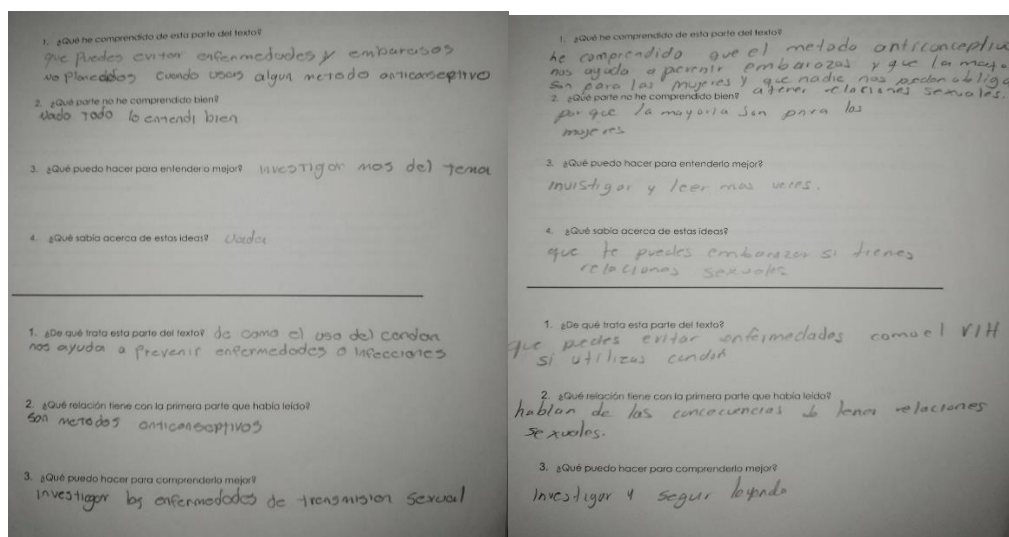 1. ¿Qué he comprendido de esta parte del texto?
que puedes evitar enfermedades y embarasos
no planeados cuando usas algun metodo anticonseptivo
2. ¿Qué parte no he comprendido bien?
Nada Todo lo entendi bien
3. ¿Qué puedo hacer para entenderlo mejor? investigar mas del tema
4. ¿Qué sabía acerca de estas ideas? Nada
1. ¿De qué trata esta parte del texto? de como el uso del condon
nos ayuda a prevenir enfermedades o infecciones
2. ¿Qué relación tiene con la primera parte que había leído?
son metodos anticonseptivos
3. ¿Qué puedo hacer para comprenderlo mejor?
investigar las enfermedades de transmision sexual
1. ¿Qué he comprendido de esta parte del texto?
he comprendido que el metodo anticonceptiv
nos ayuda a perenir embarazos y que la mayo
son para las mujeres y que nadie nos pueden obliga
a tener relaciones sexuales.
2. ¿Qué parte no he comprendido bien?
por que la mayoria son para las
mujeres
3. ¿Qué puedo hacer para entenderlo mejor?
invistigar y leer mas veces.
4. ¿Qué sabía acerca de estas ideas?
que te puedes embarazar si tienes
relaciones sexuales
1. ¿De qué trata esta parte del texto?
que pedes evitar enfermedades como el VIH
si utilizas condon
2. ¿Qué relación tiene con la primera parte que había leído?
hablan de las concecuencias de tener relaciones
sexuales.
3. ¿Qué puedo hacer para comprenderlo mejor?
Investigar y seguir leyendo